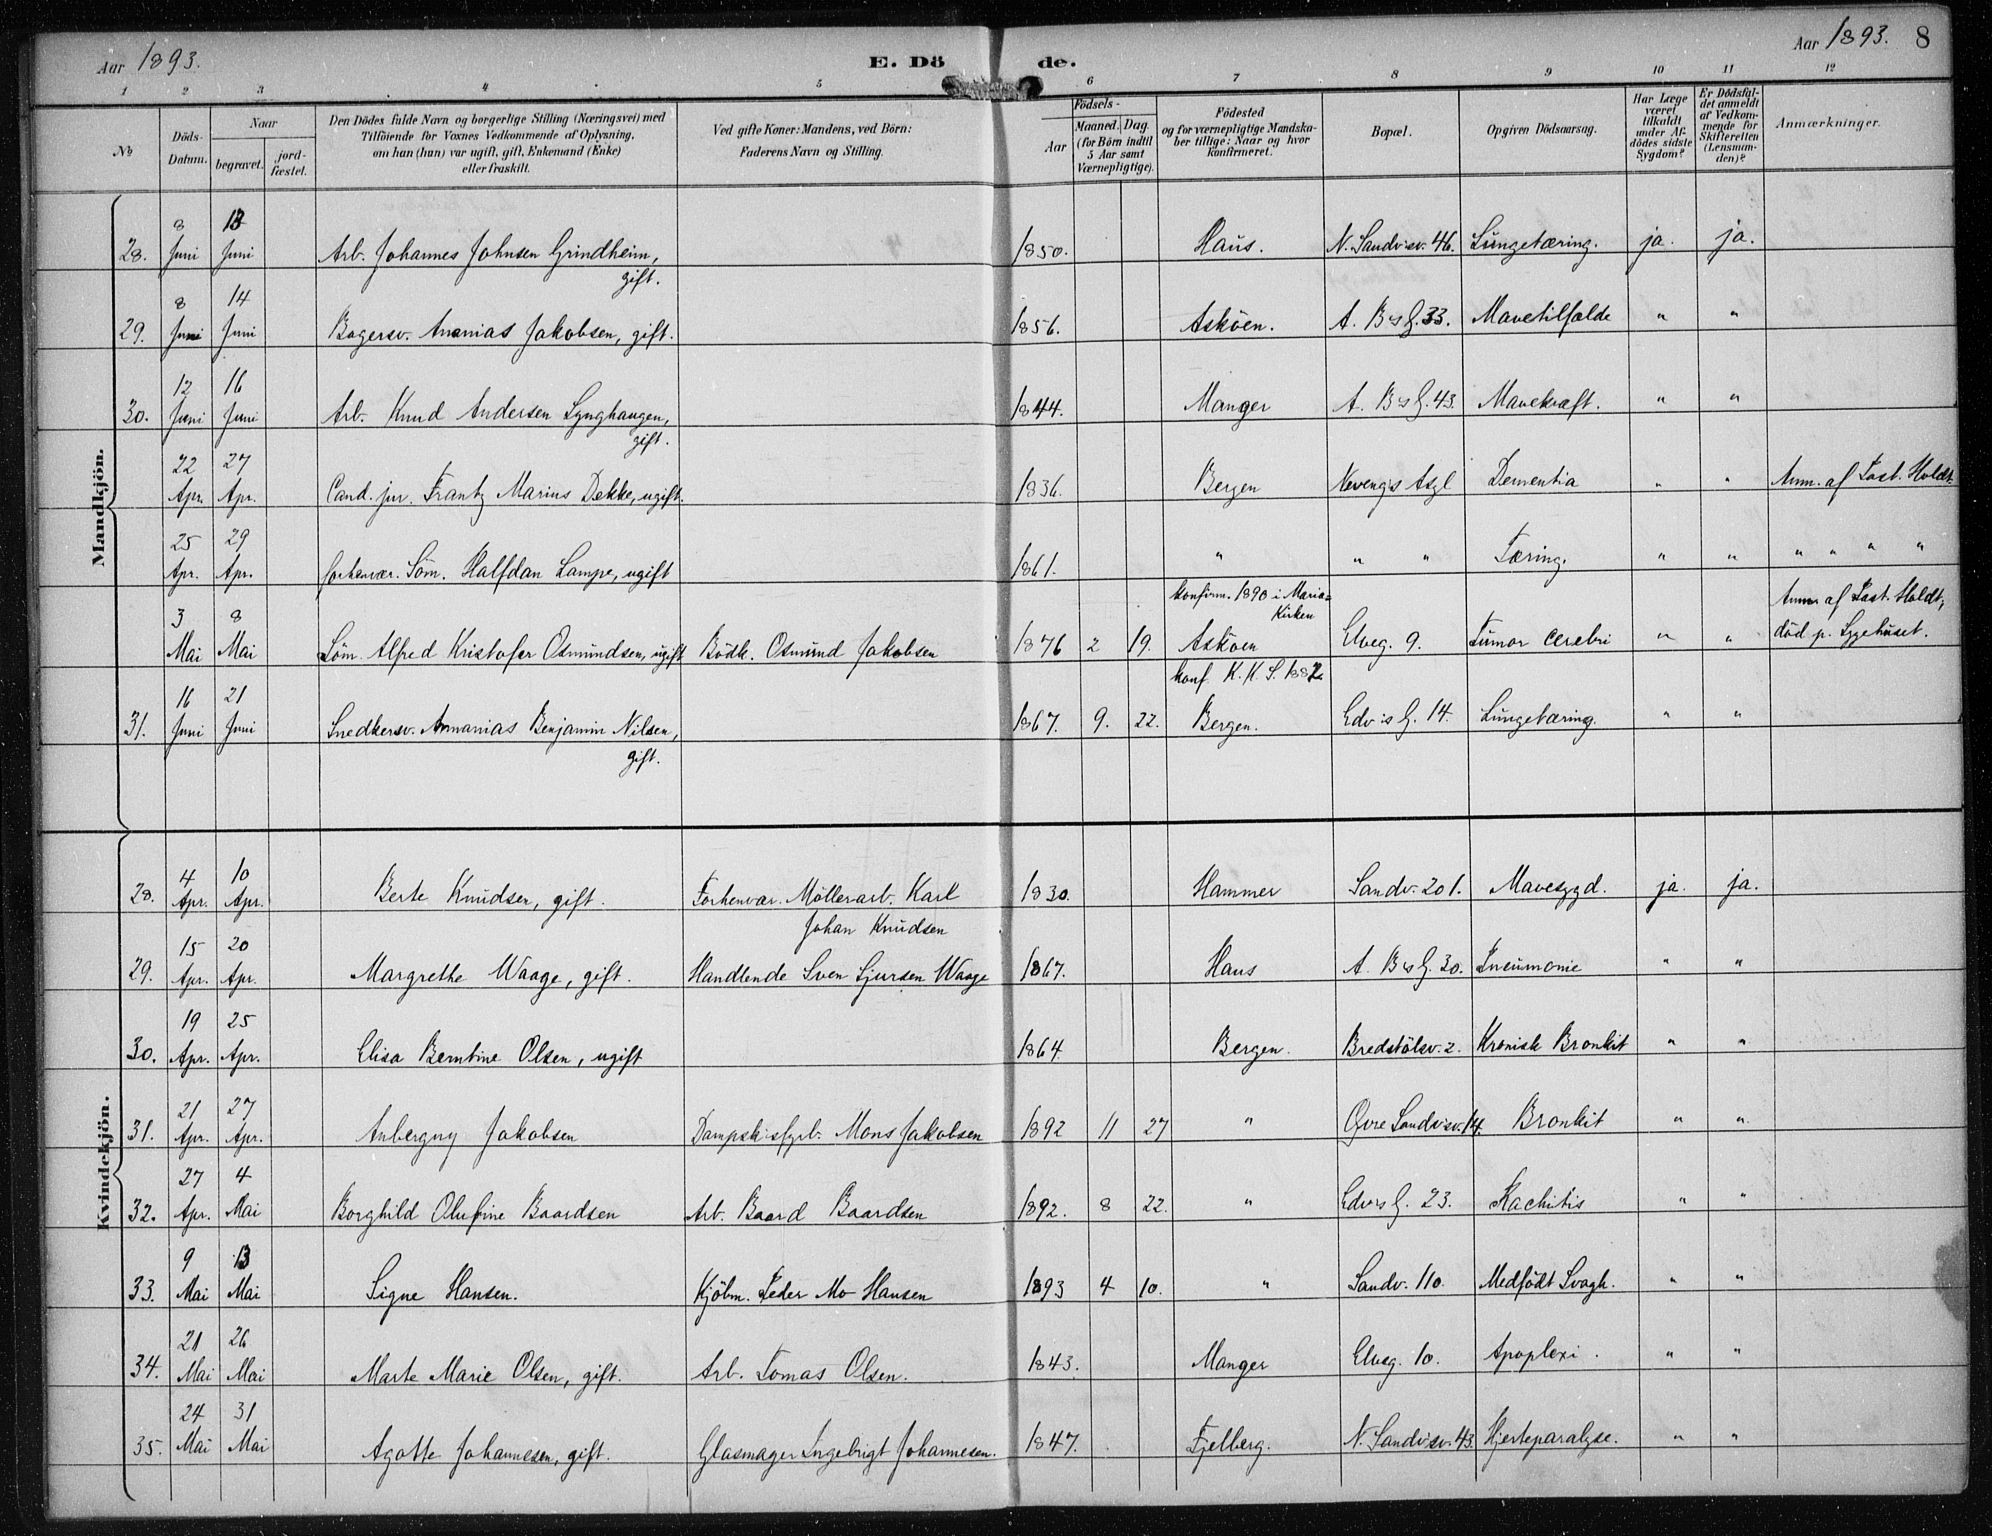 Aar 1893.
E. Dö de.
Aar 1893. 8
1 2 3 4 5 6 7 8 9 10 11 12
No
Döds-Datum.
Naar
begravet.
jord-fæstet.
Den Dödes fulde Navn og borgerlige Stilling (Næringsvei) med
Tilföiende for Voxnes Vedkommende af Oplysning,
om han (hun) var ugift, gift, Enkemand (Enke)
eller fraskilt.
Ved gifte Koner: Mandens, ved Börn:
Faderens Navn og Stilling.
Födsels-
Aar
Maaned. Dag
(for Börn indtil
5 Aar samt
Værnepligtige).
Födested
og for værnepligtige Mandska-
ber tillige: Naar og hvor
konfirmeret.
Bopæl.
Opgiven Dödsaarsag.
Har Læge
været
tilkaldt
under Af-
dödes sidste
Sygdom?
Er Dödsfal-
det anmeldt
af Vedkom-
mende for
Skifteretten
(Lensman-
den)?
Anmærkninger.
Mandkjön.
28. 8 Juni 13 Juni Arb. Johannes Johnsen Grindheim, gift. 1850. Haus. N. Sandvsv. 46. Lungetæring. ja. ja.
29. 8 Juni 14 Juni Bagersv. Ananias Jakobsen, gift. 1856. Asköen. A. BsG. 33. Mavetilfælde " "
30. 12 Juni 16 Juni Arb. Knud Andersen Lynghaugen, gift. 1844. Manger A. BsG. 43. Mavekræft. " "
22 Apr. 27 Apr. Cand. jur. Frantz Marius Dekke, ugift. 1836. Bergen Nevengs Asyl Dementia " " Anm. af Past. Holdt.
25 Apr. 29 Apr. forhenvær. Söm. Halfdan Lampe, ugift 1861. " " " Tæring. " " " " " "
3 Mai 8 Mai Söm. Alfred Kristofer Osmundsen, ugift Bödk. Osmund Jakobsen 1876 2 19. konfirm. 1890 i Maria-Kirken Asköen Elveg. 9. Tumor cerebri " " Anm af Past. Holdt, död p. Sygehuset.
31. 16 Juni 21 Juni Snedkersv. Annanias Benjamin Nilsen, gift. 1867. 9. 22. konf. K. K. S. 1882 Bergen. EdvsG. 14. Lungetæring. " "
Kvindekjön.
28. 4 Apr. 10 Apr. Berte Knudsen, gift. Forhenvær. Möllerarb. Karl Johan Knudsen 1830. Hammer Sandv. 201. Mavesygd. ja. ja.
29. 15 Apr. 20 Apr. Margrethe Waage, gift. Handlende Sven Sjursen Waage 1867. Haus A. BsG. 30. Pneumonie " "
30. 19 Apr. 25 Apr. Elisa Berntine Olsen, ugift 1864. Bergen. Bredstölsv. 2. Kronisk Bronkit " "
31. 21 Apr. 27 Apr. Anbergny Jakobsen Dampskibsfyrb. Mons Jakobsen 1892 11 27 " Övre Sandvsv. 14. Bronkit " "
32. 27 Apr. 4 Mai Borghild Olufine Baardsen Arb. Baard Baardsen 1892. 8 22. " EdvsG. 23. Rachitis " "
33. 9 Mai 13 Mai Signe Hansen. Kjöbm. Peder Mo Hansen 1893 4 10. " Sandv. 110. Medfödt Svagh. " "
34. 21 Mai 26 Mai Marte Marie Olsen, gift. Arb. Tomas Olsen. 1843. Manger Elveg. 10. Apoplexi. " "
35. 24 Mai 31 Mai Agotte Johannesen, gift. Glasmager Ingebrigt Johannesen. 1847. Fjelberg. N. Sandvsv. 43. Hjerteparalyse. " "